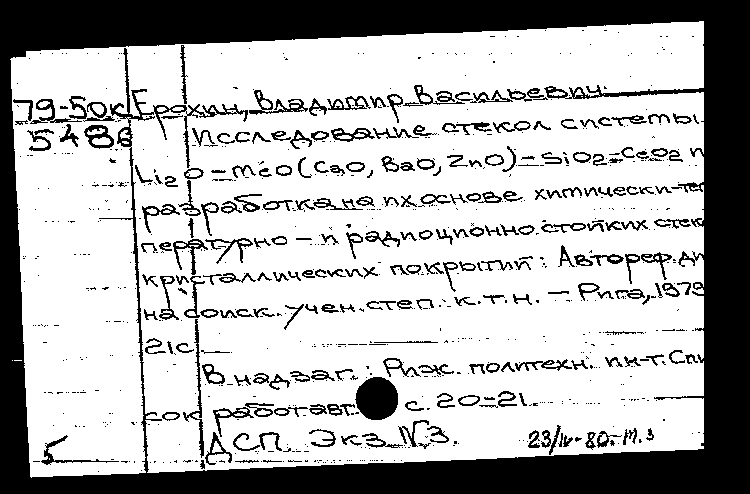 79-50к Ерохин, Владимир Васильевич.
5486 Исследование стекол системы
Li2O-MeO(CaO, BaO, ZnO)-SiO2-CeO2 и
разработка на их основе химически-тем
пературно- и радиоционно.стойких стек
кристаллических покрытий: Автореф. ди
на соиск. учен. степ. к.т.н. - Рига, 1979
21с.
В надзаг.: Риж. политехн. ин-т. Спи
сок работ авт. с. 20-21.
ДСП. Экз. №3. 23/IV-80г.
5